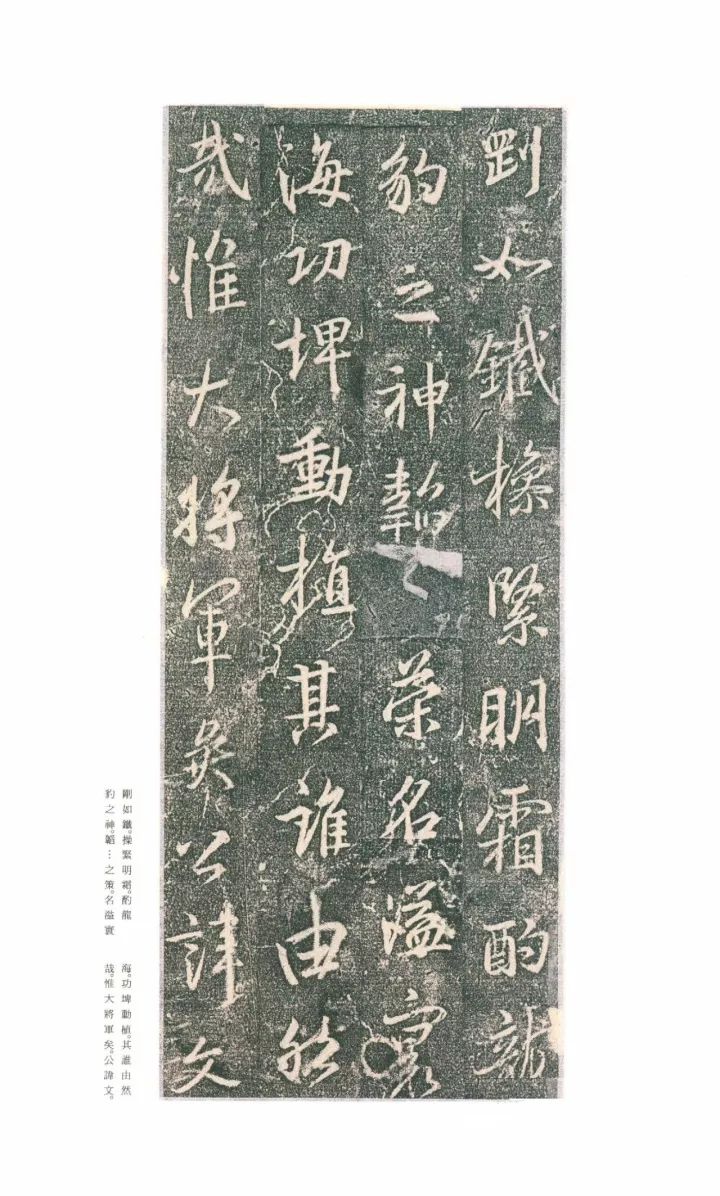 剛如鐵操緊明霜酌龍
豹之神韜策名溢寰
海功埤動植其誰由然
哉惟大將軍矣公諱文
剛如鐵。操緊明霜。酌龍
豹之神。韜…之策。名溢寰
海。功埤動植。其誰由然
哉。惟大將軍矣。公諱文。